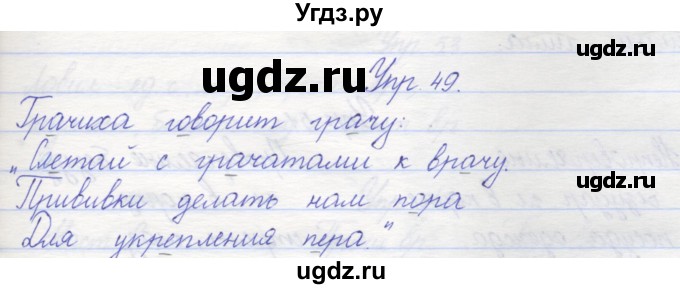 Угдз.ру
ugdz.ru ugdz.ru
Упр. 49.
Грачиха говорит грачу:
„Слетай с грачатами к врачу.
ugdz.ru
Прививки делать нам пора
Для укрепления пера."
ugdz.ru ugdz.ru